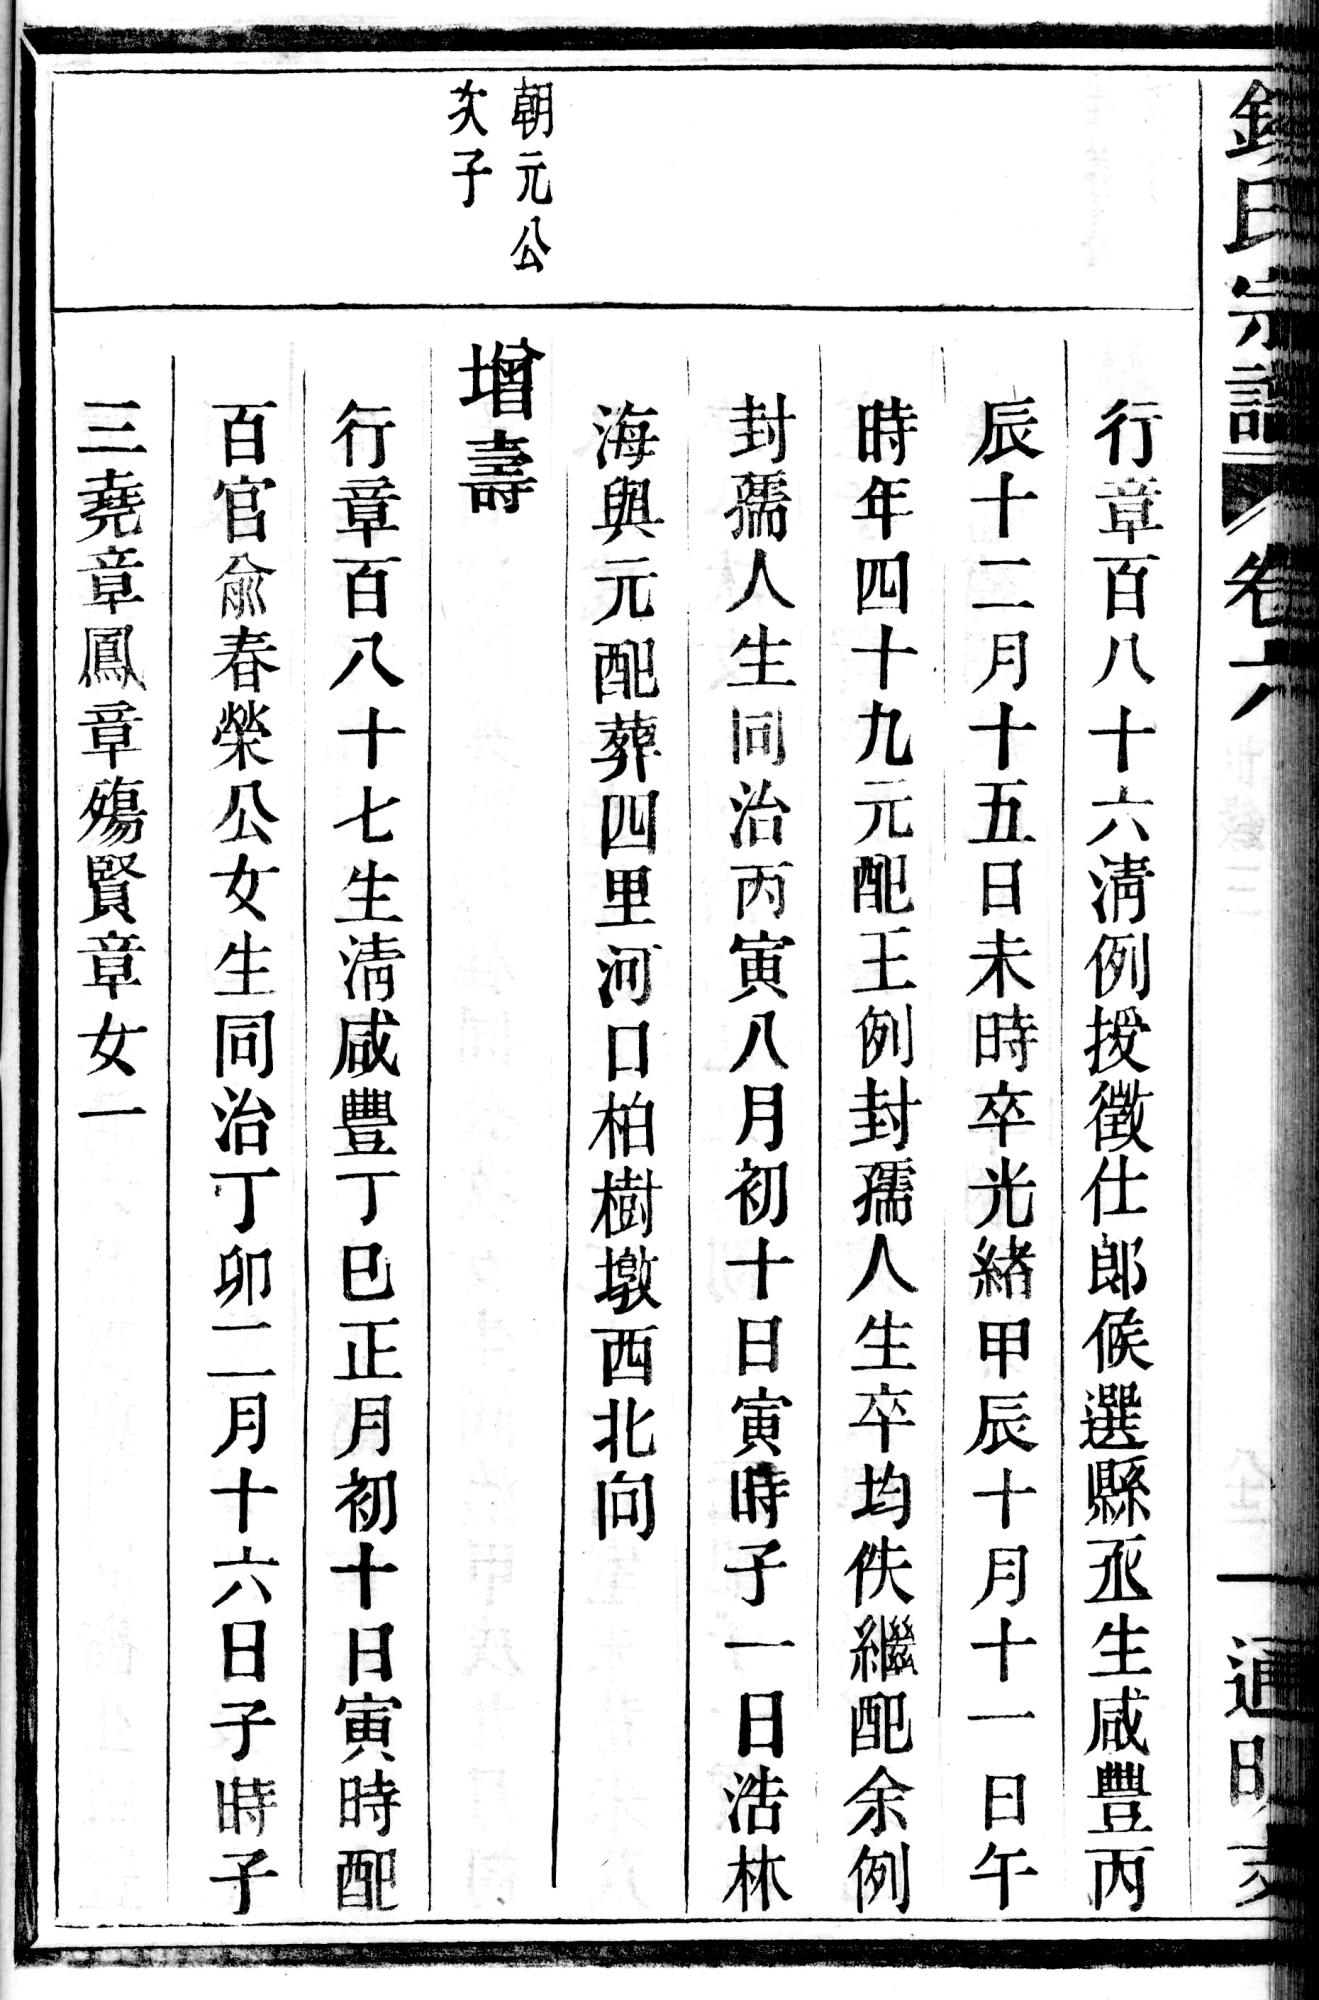 錢氏宗譜 卷六 通明支
行章百八十六清例授徵仕郎候選縣丞生咸豐丙
辰十二月十五日未時卒光緒甲辰十月十一日午
時年四十九元配王例封孺人生卒均佚繼配余例
封孺人生同治丙寅八月初十日寅時子一日浩林
海與元配葬四里河口柏樹墩西北向
朝元公
次子
增壽
行章百八十七生清咸豐丁巳正月初十日寅時配
百官俞春榮公女生同治丁卯二月十六日子時子
三堯章鳳章殤賢章女一